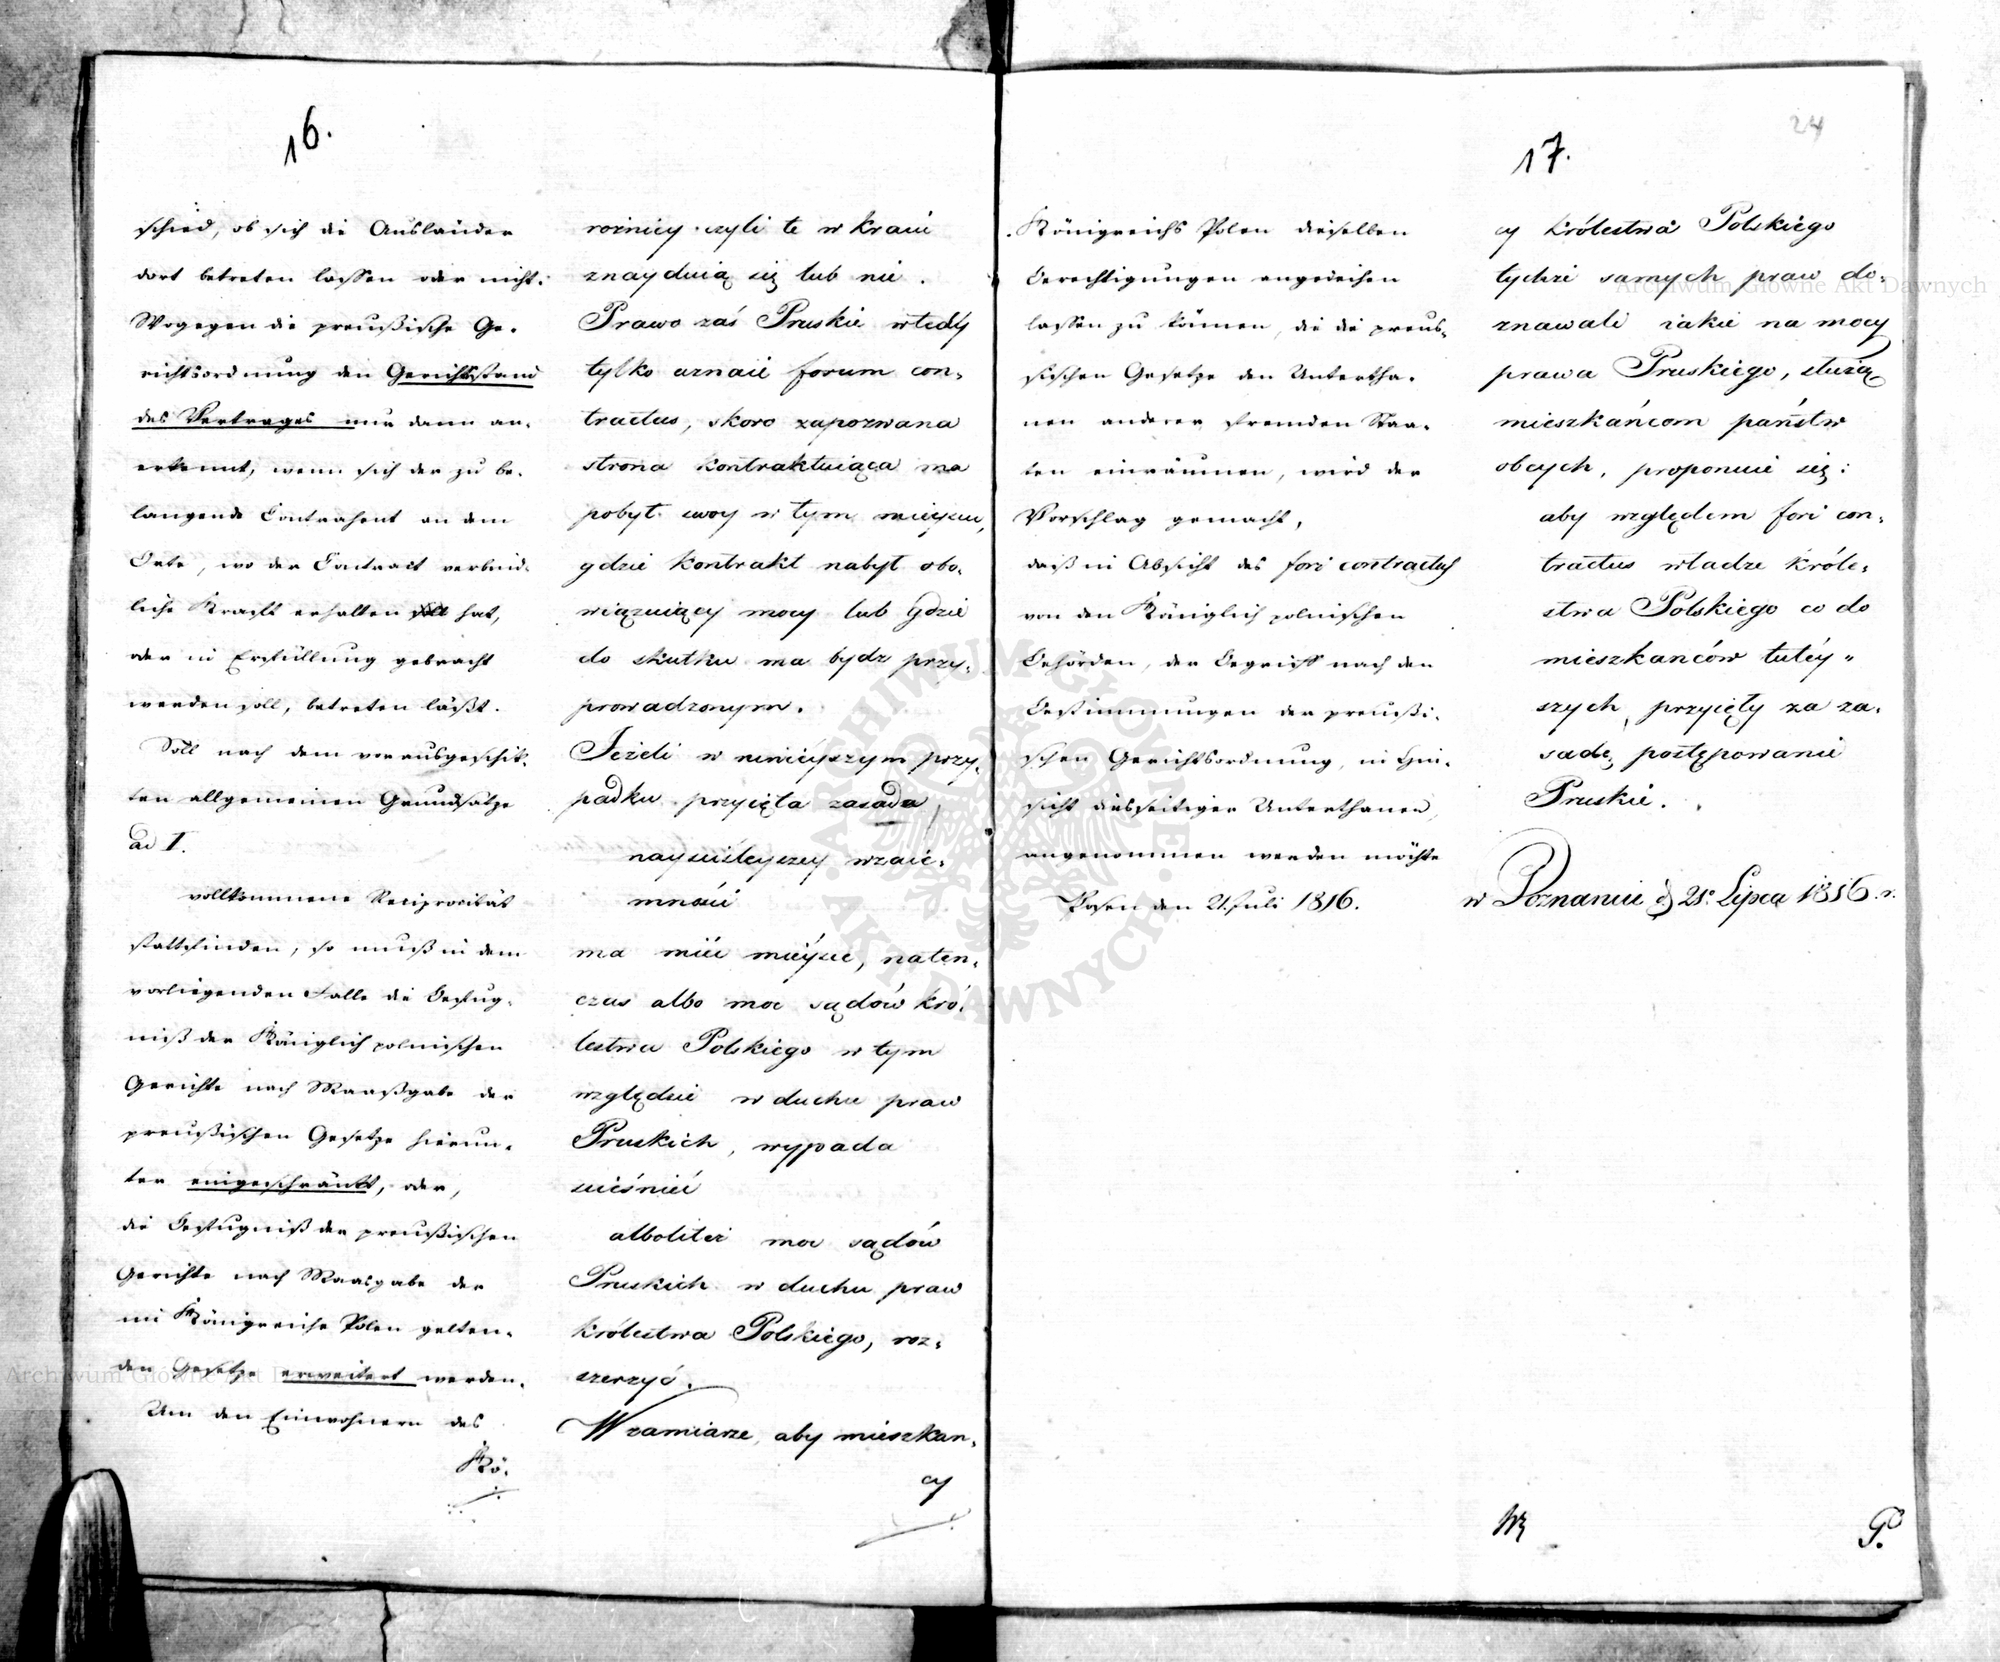 16.
schied, ob sich die Ausländer
dort betreten lassen oder nicht.
Wogegen die preußische Ge-
richtsordnung den Gerichtsstand
des Vertrages nur dann an-
erkennt, wenn sich der zu be-
langende Contrahent an dem
Orte, wo der Contract verbind-
liche Kraft erhalten hat,
oder in Erfüllung gebracht
werden soll, betreten läßt.
Soll nach dem vorausgeschik-
ten allgemeinen Grundsatze
ad I.
vollkommene Reciprocität
stattfinden, so muß in dem
vorliegenden Falle die Befug-
niß der Königlich polnischen
Gerichte nach Maaßgabe der
preußischen Gesetze hierun-
ter eingeschränkt, oder,
die Befugniß der preußischen
Gerichte nach Maasgabe der
im Königreiche Polen gelten-
den Gesetze erweitert werden.
Um den Einwohnern des
Kö-
rożnicy czyli te w kraiu
znayduią się lub nie.
Prawo zaś Pruskie wtedy
tylko uznaie forum con-
tractus, skoro zapozwana
strona kontraktuiąca ma
pobyt swoy w tym mieyscu,
gdzie kontrakt nabył obo-
wiązuiący mocy lub gdzie
do skutku ma bydź przy-
prowadzonym.
Jeżeli w ninieyszym przy-
padku przyięta zasada,
nayściśleyszey wzaie-
mności
ma mieć mieysce, naten-
czas albo moc sądów kró-
lestwa Polskiego w tym
względzie w duchu praw
Pruskich, wypada
ścieśnić
alboliteż moc sądów
Pruskich w duchu praw
królestwa Polskiego, roz-
szerzyć.
W zamiarze, aby mieszkań-
cy
24
17.
Königreichs Polen dieselben
Berechtigungen angedeihen
lassen zu können, die die preus-
sischen Gesetze den Untertha-
nen anderer fremden Staa-
ten einräumen, wird der
Vorschlag gemacht,
daß in Absicht des fori contractus
von den Königlich polnischen
Behörden, der Begriff nach den
Bestimmungen der preußi-
schen Gerichtsordnung, in Hin-
sicht diesseitiger Unterthanen,
angenommen werden möchte
Posen den 21. Juli 1816.
cy królestwa Polskiego
tychże samych praw do-
znawali iakie na mocy
prawa Pruskiego, służą
mieszkańcom państw
obcych, proponuie się:
aby względem fori con-
tractus władze króle-
stwa Polskiego co do
mieszkanców tutéy-
szych, przyięły za za-
sadę, postępowanie
Pruskie.
w Poznaniu d 21. Lipca 1816. r.
ARCHIWUM GŁÓWNE AKT DAWNYCH
Archiwum Główne Akt Dawnych
Archiwum Główne Akt D